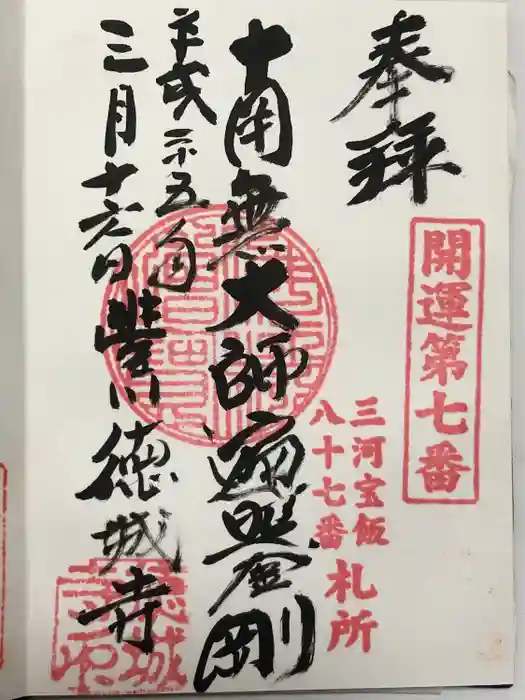 奉拝
開運第七番
三河宝飯
八十七番札所
南無大師遍照金剛
平成二十五年
三月十六日 豊川 徳城寺